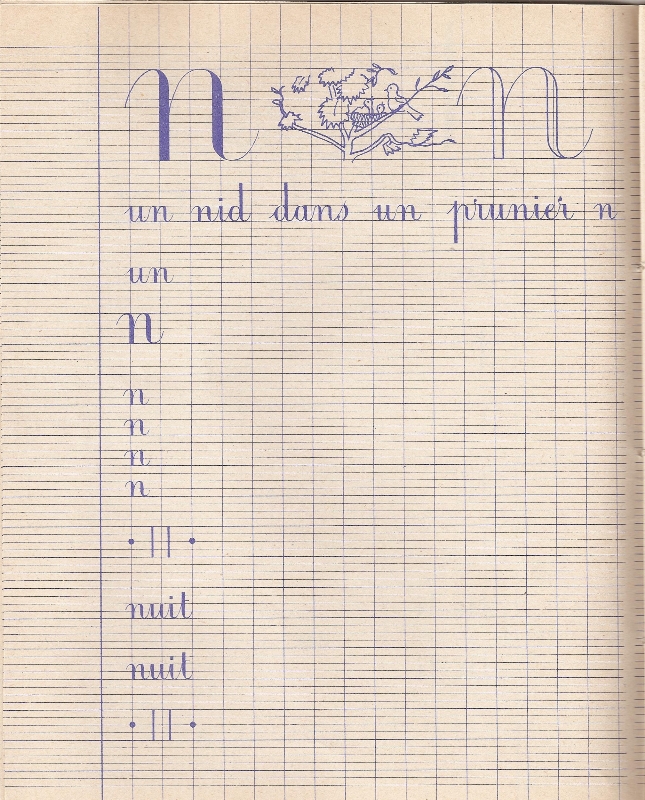 n n
un nid dans un prunier n
un
n
n
n
n
n
nuit
nuit